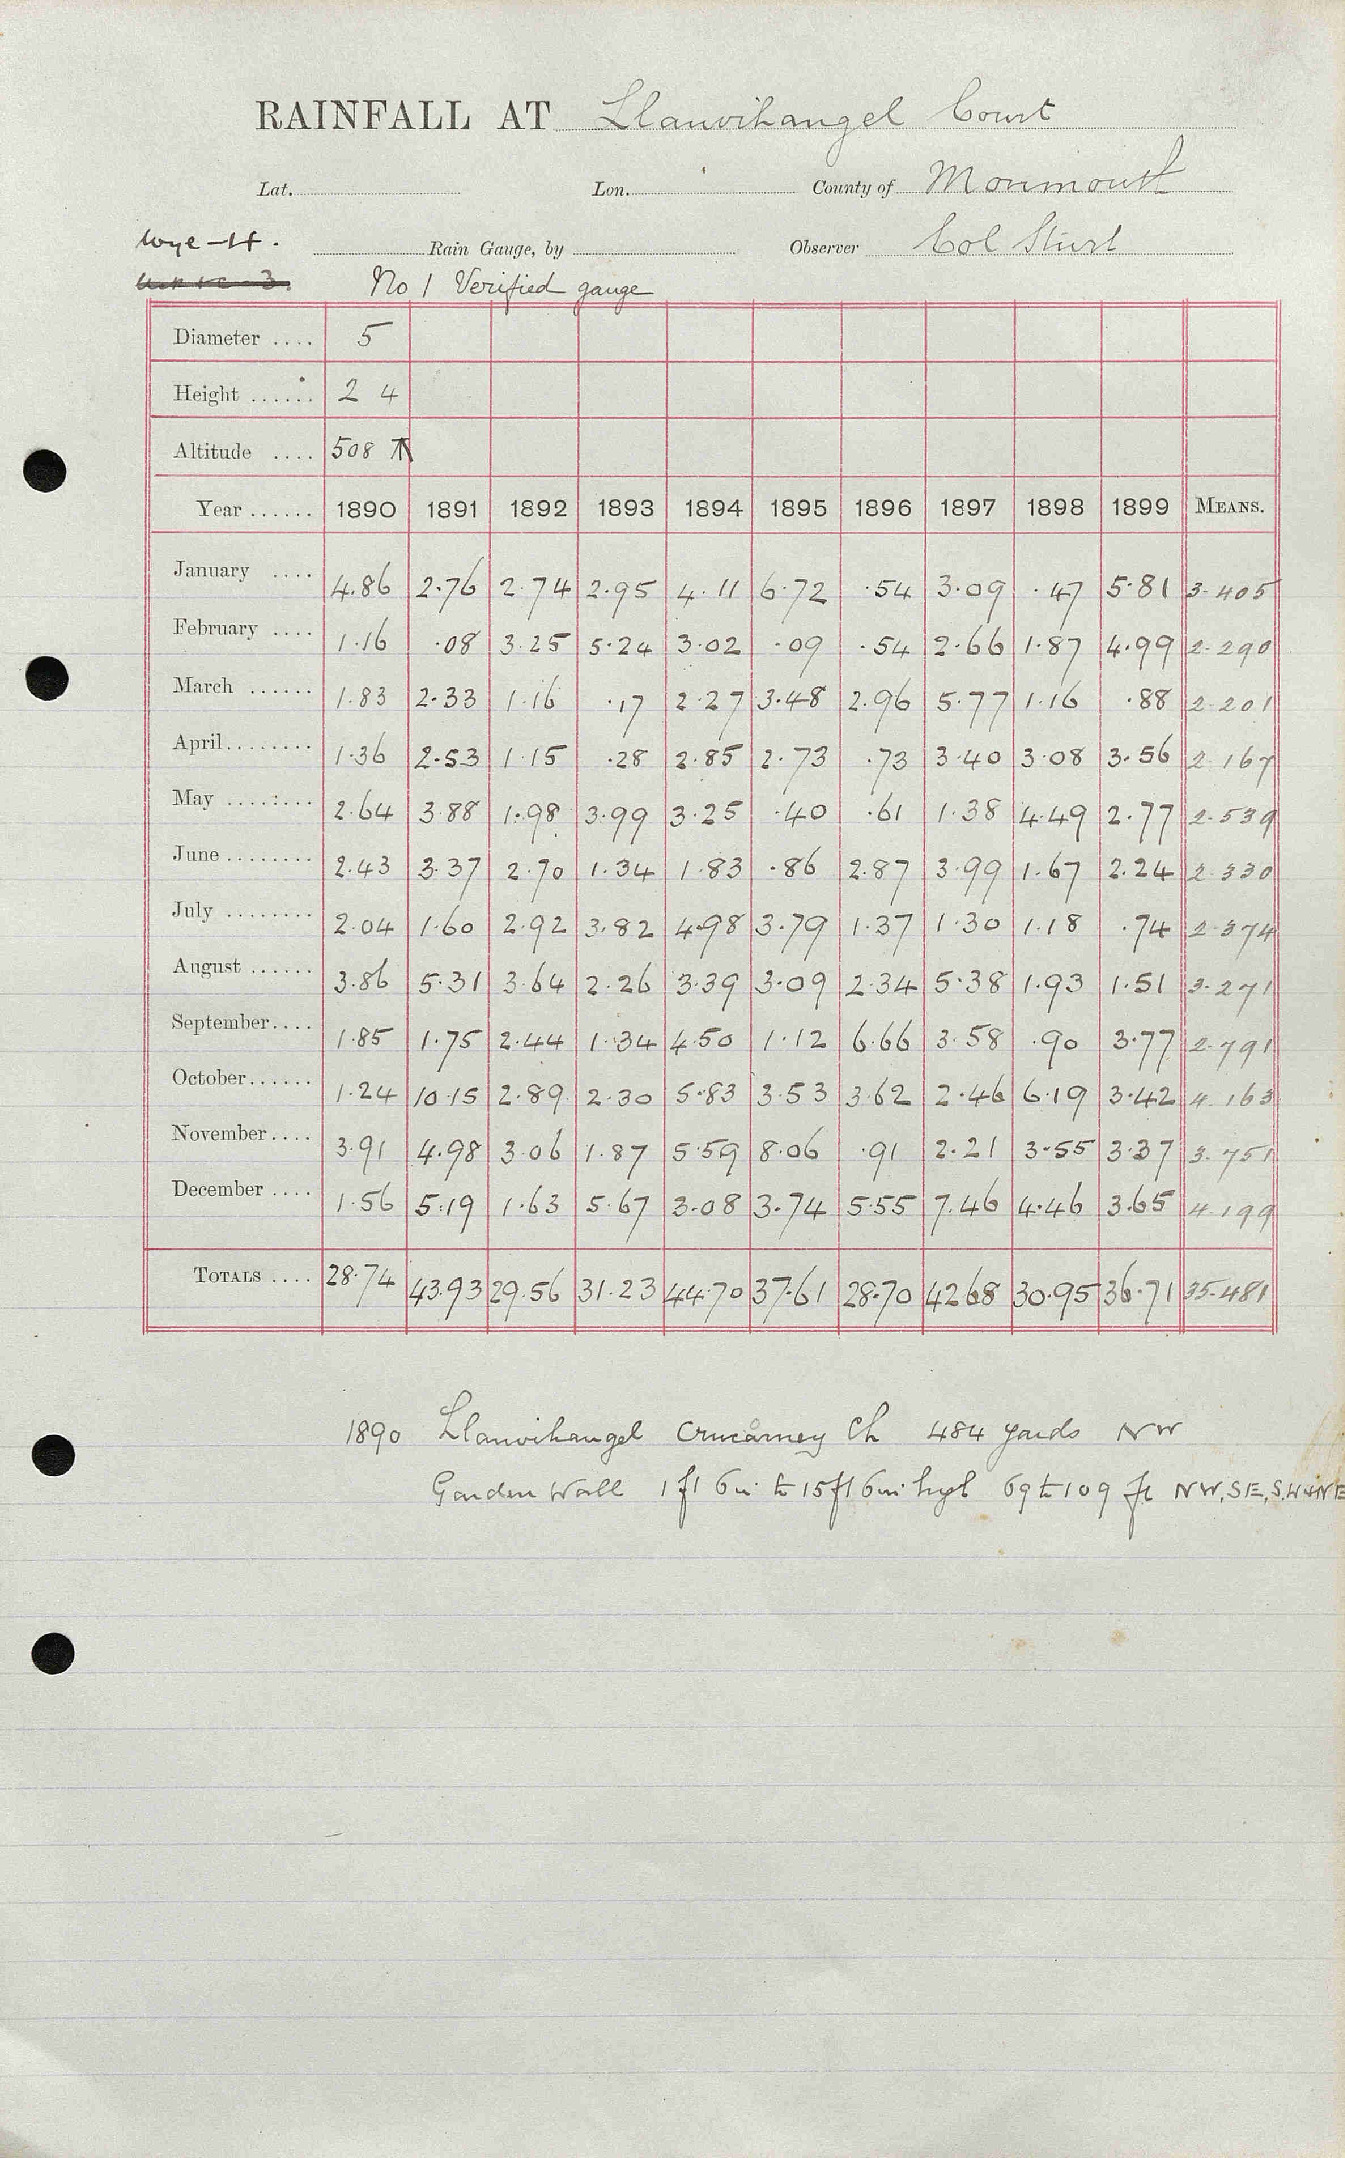 RAINFALL AT Llanvihangel Court
Lat. Lon. County of Monmouth
Wye - H. Rain Gauge, by Observer Col Sturt
No 1 Verified gauge
Diameter .... 5
Height ...... 2 4
Altitude .... 508 T
Year ...... 1890 1891 1892 1893 1894 1895 1896 1897 1898 1899 MEANS.
January .... 4.86 2.76 2.74 2.95 4.11 6.72 .54 3.09 .47 5.81 3.405
February .... 1.16 .08 3.25 5.24 3.02 .09 .54 2.66 1.87 4.99 2.290
March ...... 1.83 2.33 1.16 .17 2.27 3.48 2.96 5.77 1.16 .88 2.201
April........ 1.36 2.53 1.15 .28 2.85 2.73 .73 3.40 3.08 3.56 2.167
May ........ 2.64 3.88 1.98 3.99 3.25 .40 .61 1.38 4.49 2.77 2.539
June ........ 2.43 3.37 2.70 1.34 1.83 .86 2.87 3.99 1.67 2.24 2.330
July ........ 2.04 1.60 2.92 3.82 4.98 3.79 1.37 1.30 1.18 .74 2.374
August ...... 3.86 5.31 3.64 2.26 3.39 3.09 2.34 5.38 1.93 1.51 3.271
September.... 1.85 1.75 2.44 1.34 4.50 1.12 6.66 3.58 .90 3.77 2.791
October...... 1.24 10.15 2.89 2.30 5.83 3.53 3.62 2.46 6.19 3.42 4.163
November.... 3.91 4.98 3.06 1.87 5.59 8.06 .91 2.21 3.55 3.37 3.751
December .... 1.56 5.19 1.63 5.67 3.08 3.74 5.55 7.46 4.46 3.65 4.199
TOTALS .... 28.74 43.93 29.56 31.23 44.70 37.61 28.70 42.68 30.95 36.71 35.481
1890 Llanvihangel Crucorney Ch 484 yards NW
Garden Wall 1 ft 6 in to 15 ft 6 in high 69 to 109 ft NW, SE, SW & NE